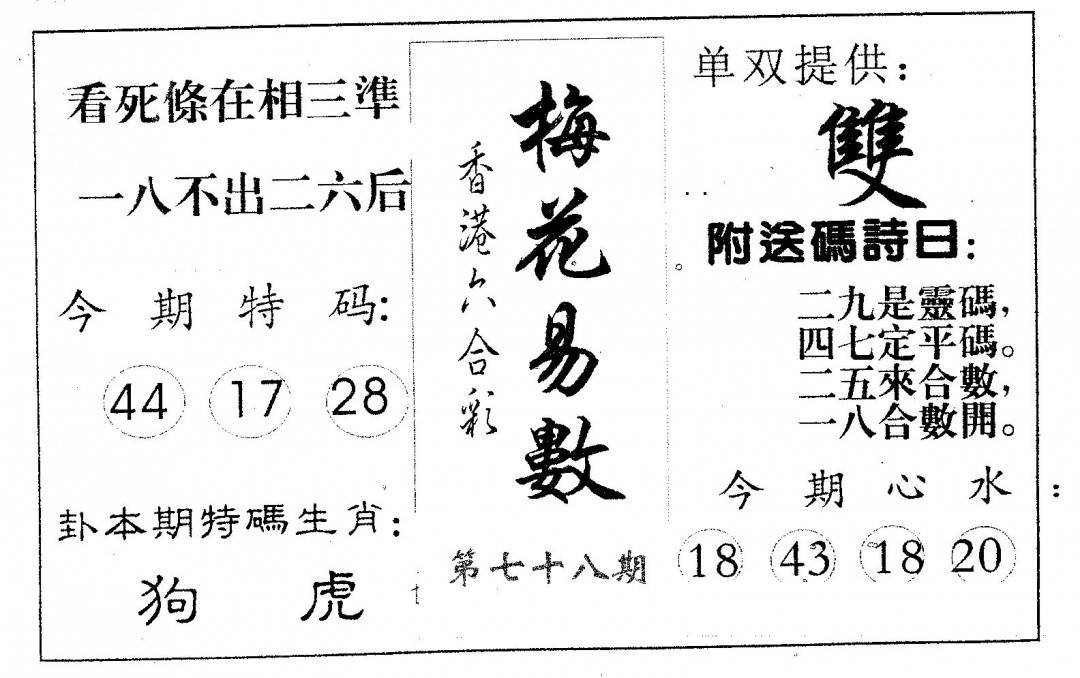 看死條在相三準
一八不出二六后
今期特码:
44 17 28
卦本期特碼生肖:
狗 虎
梅花易數
香港六合彩
第七十八期
单双提供:
雙
附送碼詩曰:
二九是靈碼,
四七定平碼。
二五來合數,
一八合數開。
今期心水:
18 43 18 20